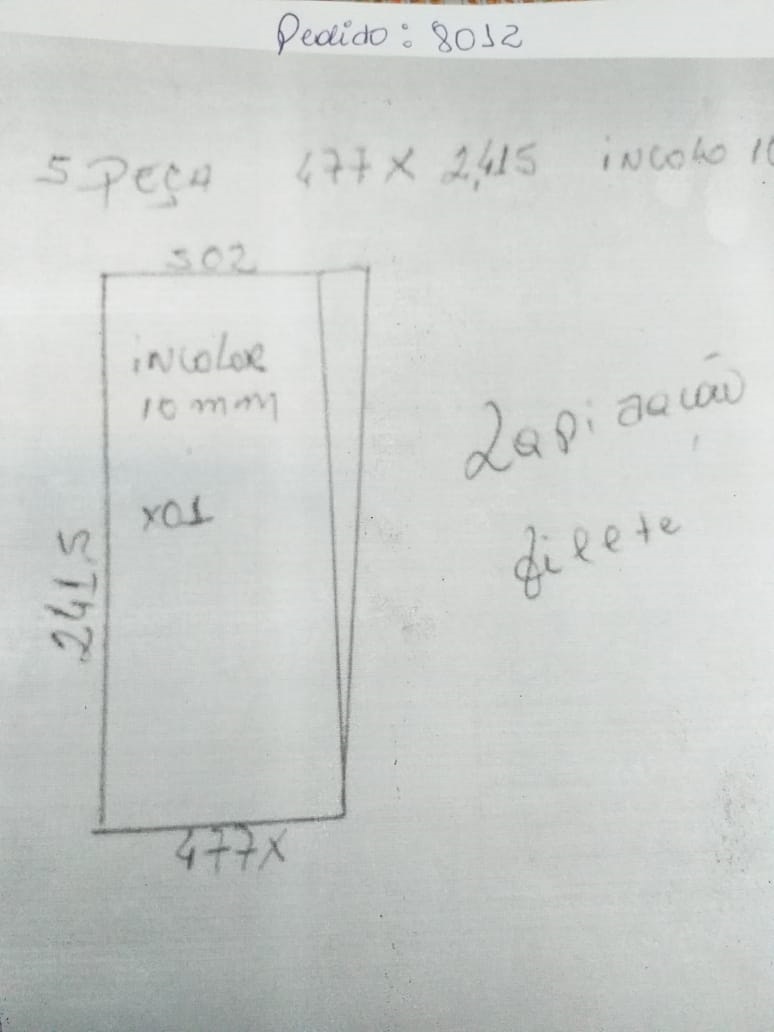 Pedido: 8012
5 PEÇA 477 X 2,415 incolo 10
502
incolor
10 mm
x01
2415
Lapidação
filete
477X